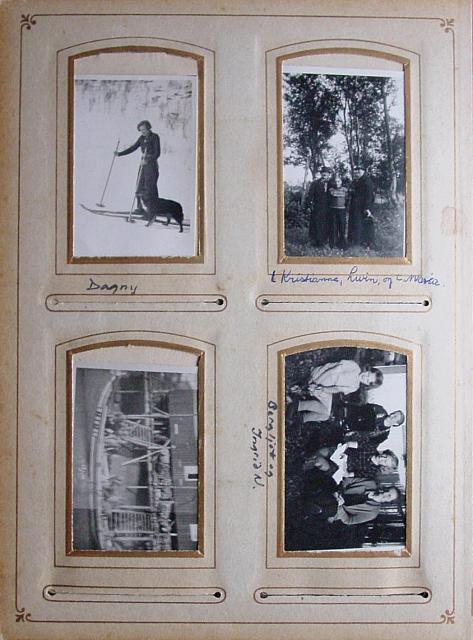 Dagny
t Kristianna, Luin, og t Maria.
Bergljot og
Ingrid N.